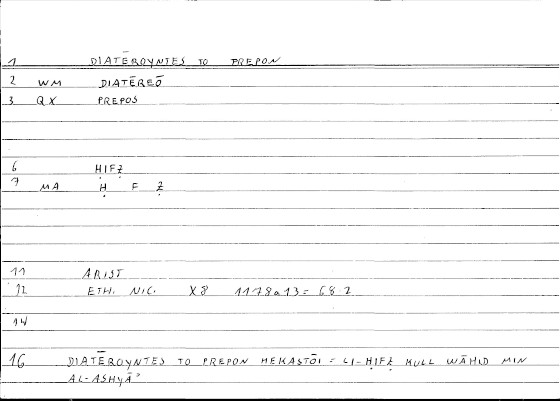 1 DIATĒROYNTES TO PREPON
2 WM DIATĒREŌ
3 QX PREPOS
6 ḤIFẒ
7 MA Ḥ F Ẓ
11 ARIST
12 ETH. NIC. X8 1178a13 = 68.2
14
16 DIATĒROYNTES TO PREPON HEKASTŌI = LI-ḤIFẒ KULL WĀḤID MIN
AL-ASHYĀʾ